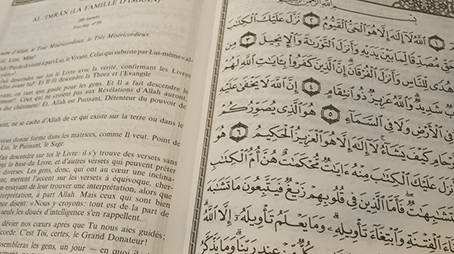 AL-'IMRAN (LA FAMILLE D'IMRAN)
200 versets
d'Allah, le Tout Miséricordieux, le Très Miséricordieux.
Lim, Mîm.
pas de divinité à part Lui, le Vivant, Celui qui subsiste par Lui-même
fait descendre sur toi le Livre avec la vérité, confirmant les Livres
avant lui. Et Il fit descendre la Thora et l'Evangile
en tant que guide pour les gens. Et Il a fait descendre le
Ceux qui ne croient pas aux Révélations d'Allah auront,
dur châtiment! Et, Allah est Puissant, Détenteur du pouvoir de
ne se cache d'Allah de ce qui existe sur la terre ou dans le
vous donne forme dans les matrices, comme Il veut. Point de
Lui, le Puissant, le Sage.
fait descendre sur toi le Livre: il s'y trouve des versets sans
la base du Livre, et d'autres versets qui peuvent prêter
diverses. Les gens, donc, qui ont au cœur une inclina-
mettent l'accent sur les versets à équivoque, cher-
essayant de leur trouver une interprétation, alors que
interprétation, à part Allah. Mais ceux qui sont bien
disent: «Nous y croyons: tout est de la part de
seuls les doués d'intelligence s'en rappellent.
dévier nos cœurs après que Tu nous aies guidés;
C'est Toi, certes, le Grand Donateur!
rassembleras les gens, un jour — en quoi il
١ ٱللَّهُ لَآ إِلَٰهَ إِلَّا هُوَ ٱلْحَىُّ ٱلْقَيُّومُ ٢ نَزَّلَ عَلَيْكَ ٱلْكِتَٰبَ
بِٱلْحَقِّ مُصَدِّقًا لِّمَا بَيْنَ يَدَيْهِ وَأَنزَلَ ٱلتَّوْرَىٰةَ وَٱلْإِنجِيلَ ٣
هُدًى لِّلنَّاسِ وَأَنزَلَ ٱلْفُرْقَانَ إِنَّ ٱلَّذِينَ كَفَرُوا۟ بِـَٔايَٰتِ ٱللَّهِ لَهُمْ
شَدِيدٌ وَٱللَّهُ عَزِيزٌ ذُو ٱنتِقَامٍ ٤ إِنَّ ٱللَّهَ لَا يَخْفَىٰ عَلَيْهِ
فِى ٱلْأَرْضِ وَلَا فِى ٱلسَّمَآءِ ٥ هُوَ ٱلَّذِى يُصَوِّرُكُمْ
كَيْفَ يَشَآءُ لَآ إِلَٰهَ إِلَّا هُوَ ٱلْعَزِيزُ ٱلْحَكِيمُ ٦ هُوَ
عَلَيْكَ ٱلْكِتَٰبَ مِنْهُ ءَايَٰتٌ مُّحْكَمَٰتٌ هُنَّ أُمُّ ٱلْكِتَٰبِ
مُتَشَٰبِهَٰتٌ فَأَمَّا ٱلَّذِينَ فِى قُلُوبِهِمْ زَيْغٌ فَيَتَّبِعُونَ مَا تَشَٰبَهَ
ٱلْفِتْنَةِ وَٱبْتِغَآءَ تَأْوِيلِهِۦ وَمَا يَعْلَمُ تَأْوِيلَهُۥٓ إِلَّا ٱللَّهُ
كُلٌّ مِّنْ عِندِ رَبِّنَا وَمَا يَذَّكَّرُ